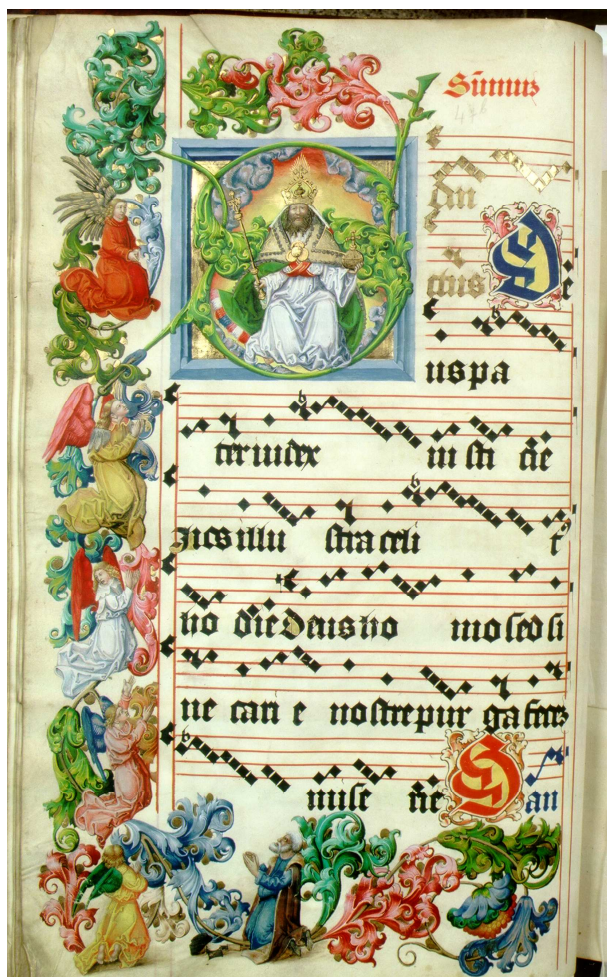 Sūmus
an
ctus S
us pa
ter iudex iu sti cie
illu stra celi
no die deus no mo sed li
ne cari e nostre pur ga feces
mise rie S an